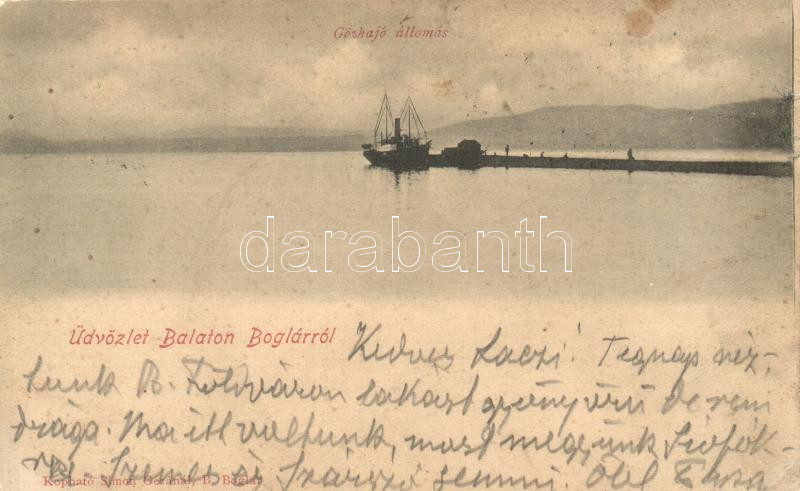 Gőzhajó állomás
darabanth
Üdvözlet Balaton Boglárról
Kedves Laczi! Tegnap néz-
tunk B. Földváron lakást gyönyörű de rem
drága. Ma itt voltunk, most megyünk Siófok-
ra. Szemes és Szárszó semmi. Ölel
Kapható Simon Gerőnél, B. Boglár